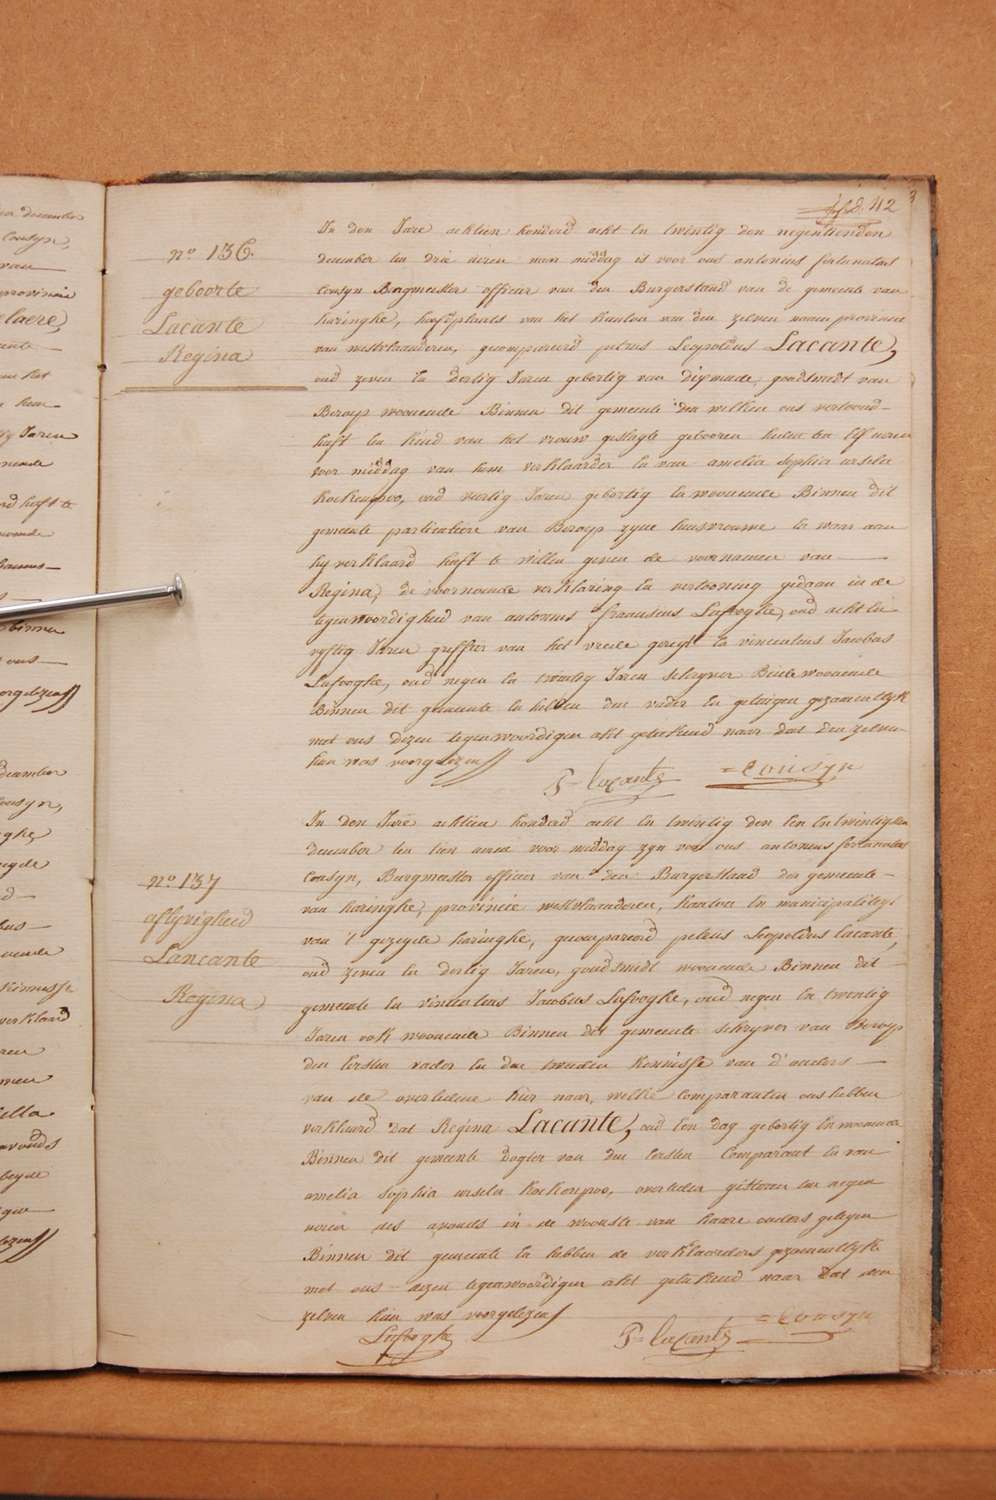 fol. 42
n° 136.
geboorte
Lacante
Regina
In den Jare achtien honderd acht en twintig den negentienden
december ten drie uren naer middag is voor ons antonius fortunatus
Cousyn Burgmeester officier van den Burgerstand van de gemeente van
haringhe, hoofdplaets van het kanton van den zelven naem provincie
van westvlaanderen, gecompareerd petrus Leopoldus Lacante,
oud zeven en dertig Jaren gebortig van dixmude, goudsmedt van
Beroep woonende Binnen dit gemeente den welken ons vertoond
heeft een kind van het vrouw geslagte gebooren heden ten elf uren
voor middag van hem verklaarder en van amelia sophia ursula
kockenpoo, oud veertig Jaren gebortig en woonende Binnen dit
gemeente particuliere van Beroep zyne huisvrouwe en waer aen
hy verklaard heeft te willen geven de voornamen van
Regina, de voornoemde verklaring en vertooning gedaan in de
tegenwoordigheid van antonius franciscus Lafooghe, oud acht en
vyftig Jaren greffier van het vrede geregt en vincentius Jacobus
Lafooghe, oud negen en twintig Jaren schryver Beide woonende
Binnen dit gemeente en hebben den vader en getuigen gezamentlyk
met ons dezen tegenwoordigen akt geteekend naer dat den zelven
hun was voorgelezen
P= Lacante =Cousyn
n° 137
aflyvigheid
Lancante
Regina
In den Jare achtien honderd acht en twintig den een en twintigsten
december ten tien uren voor middag zyn voor ons antonius fortunatus
Cousyn, Burgmeester officier van den Burgerstand der gemeente
van haringhe, provincie westvlaanderen, kanton en municipaliteyt
van 't gezegde haringhe, gecompareerd petrus Leopoldus lacante,
oud zeven en dertig Jaren, goudsmidt woonende Binnen dit
gemeente en vincentius Jacobus Lafooghe, oud negen en twintig
Jaren ook woonende Binnen dit gemeente schryver van Beroep
den eersten vader en den tweeden kennisse van d'ouders
van de overledene hier naer, welke comparanten ons hebben
verklaerd dat Regina Lacante, oud een dag gebortig en woonende
Binnen dit gemeente dogter van den eersten Comparant en van
amelia sophia ursula kockenpoo, overleden gisteren ten negen
uren des avonds in de woonste van haare ouders gelegen
Binnen dit gemeente en hebben de verklaarders gezamentlyk
met ons dezen tegenwoordigen akt geteekend naer dat den
zelven hun was voorgelezen
Lafooghe P= Lacante =Cousyn